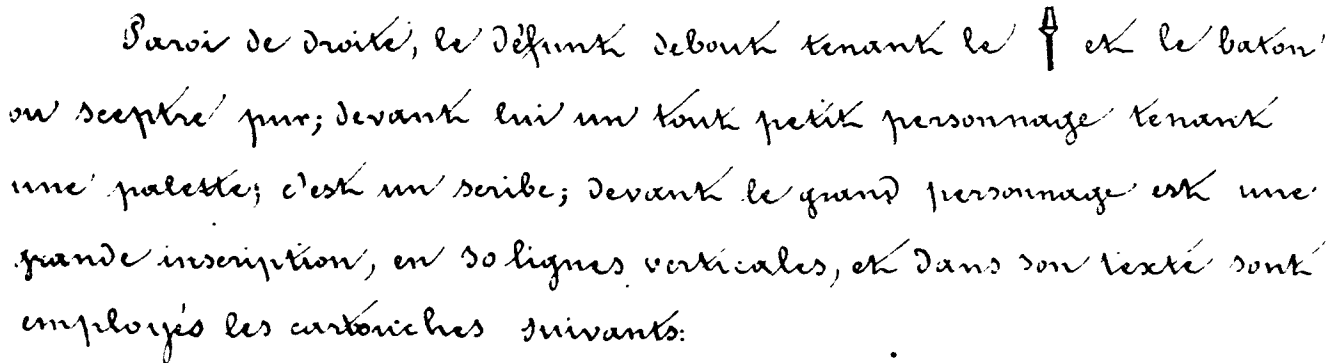 Paroi de droite, le défunt debout tenant le 𓌂 et le baton
ou sceptre pur; devant lui un tout petit personnage tenant
une palette; c'est un scribe; devant le grand personnage est une
grande inscription, en 30 lignes verticales, et dans son texte sont
employés les cartouches suivants: